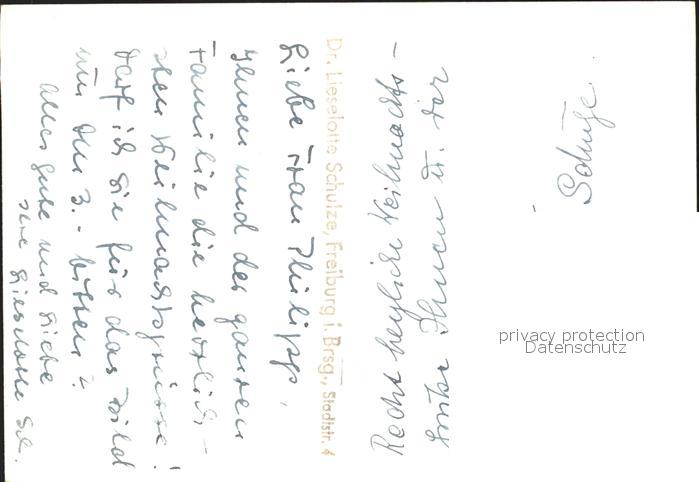 Dr. Lieselotte Schulze, Freiburg i. Brsg., Stadtstr. 4
Liebe Frau Philipp,
Ihnen und der ganzen
Familie die herzlich-
sten Weihnachtsgrüsse!
Darf ich Sie für das Bild
um DM 3.- bitten?
Alles Gute und Liebe
Ihre Lieselotte Sch.
Recht herzliche Weihnachts-
Ihnen u.
Schulze.
privacy protection
Datenschutz